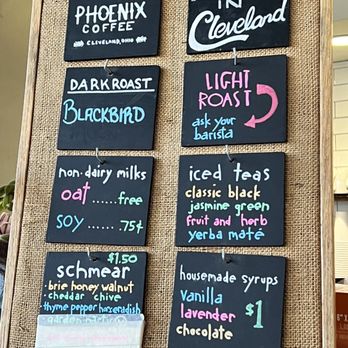 PHOENIX
COFFEE
CLEVELAND, OHIO
IN
Cleveland
DARK ROAST
BLACKBIRD
LIGHT
ROAST
ask your
barista
non-dairy milks
oat ...... free
soy ..... .75¢
iced teas
classic black
jasmine green
fruit and herb
yerba maté
$1.50
schmear
• brie honey walnut
• cheddar chive
thyme pepper horseradish
housemade syrups
vanilla
lavender
chocolate
$1